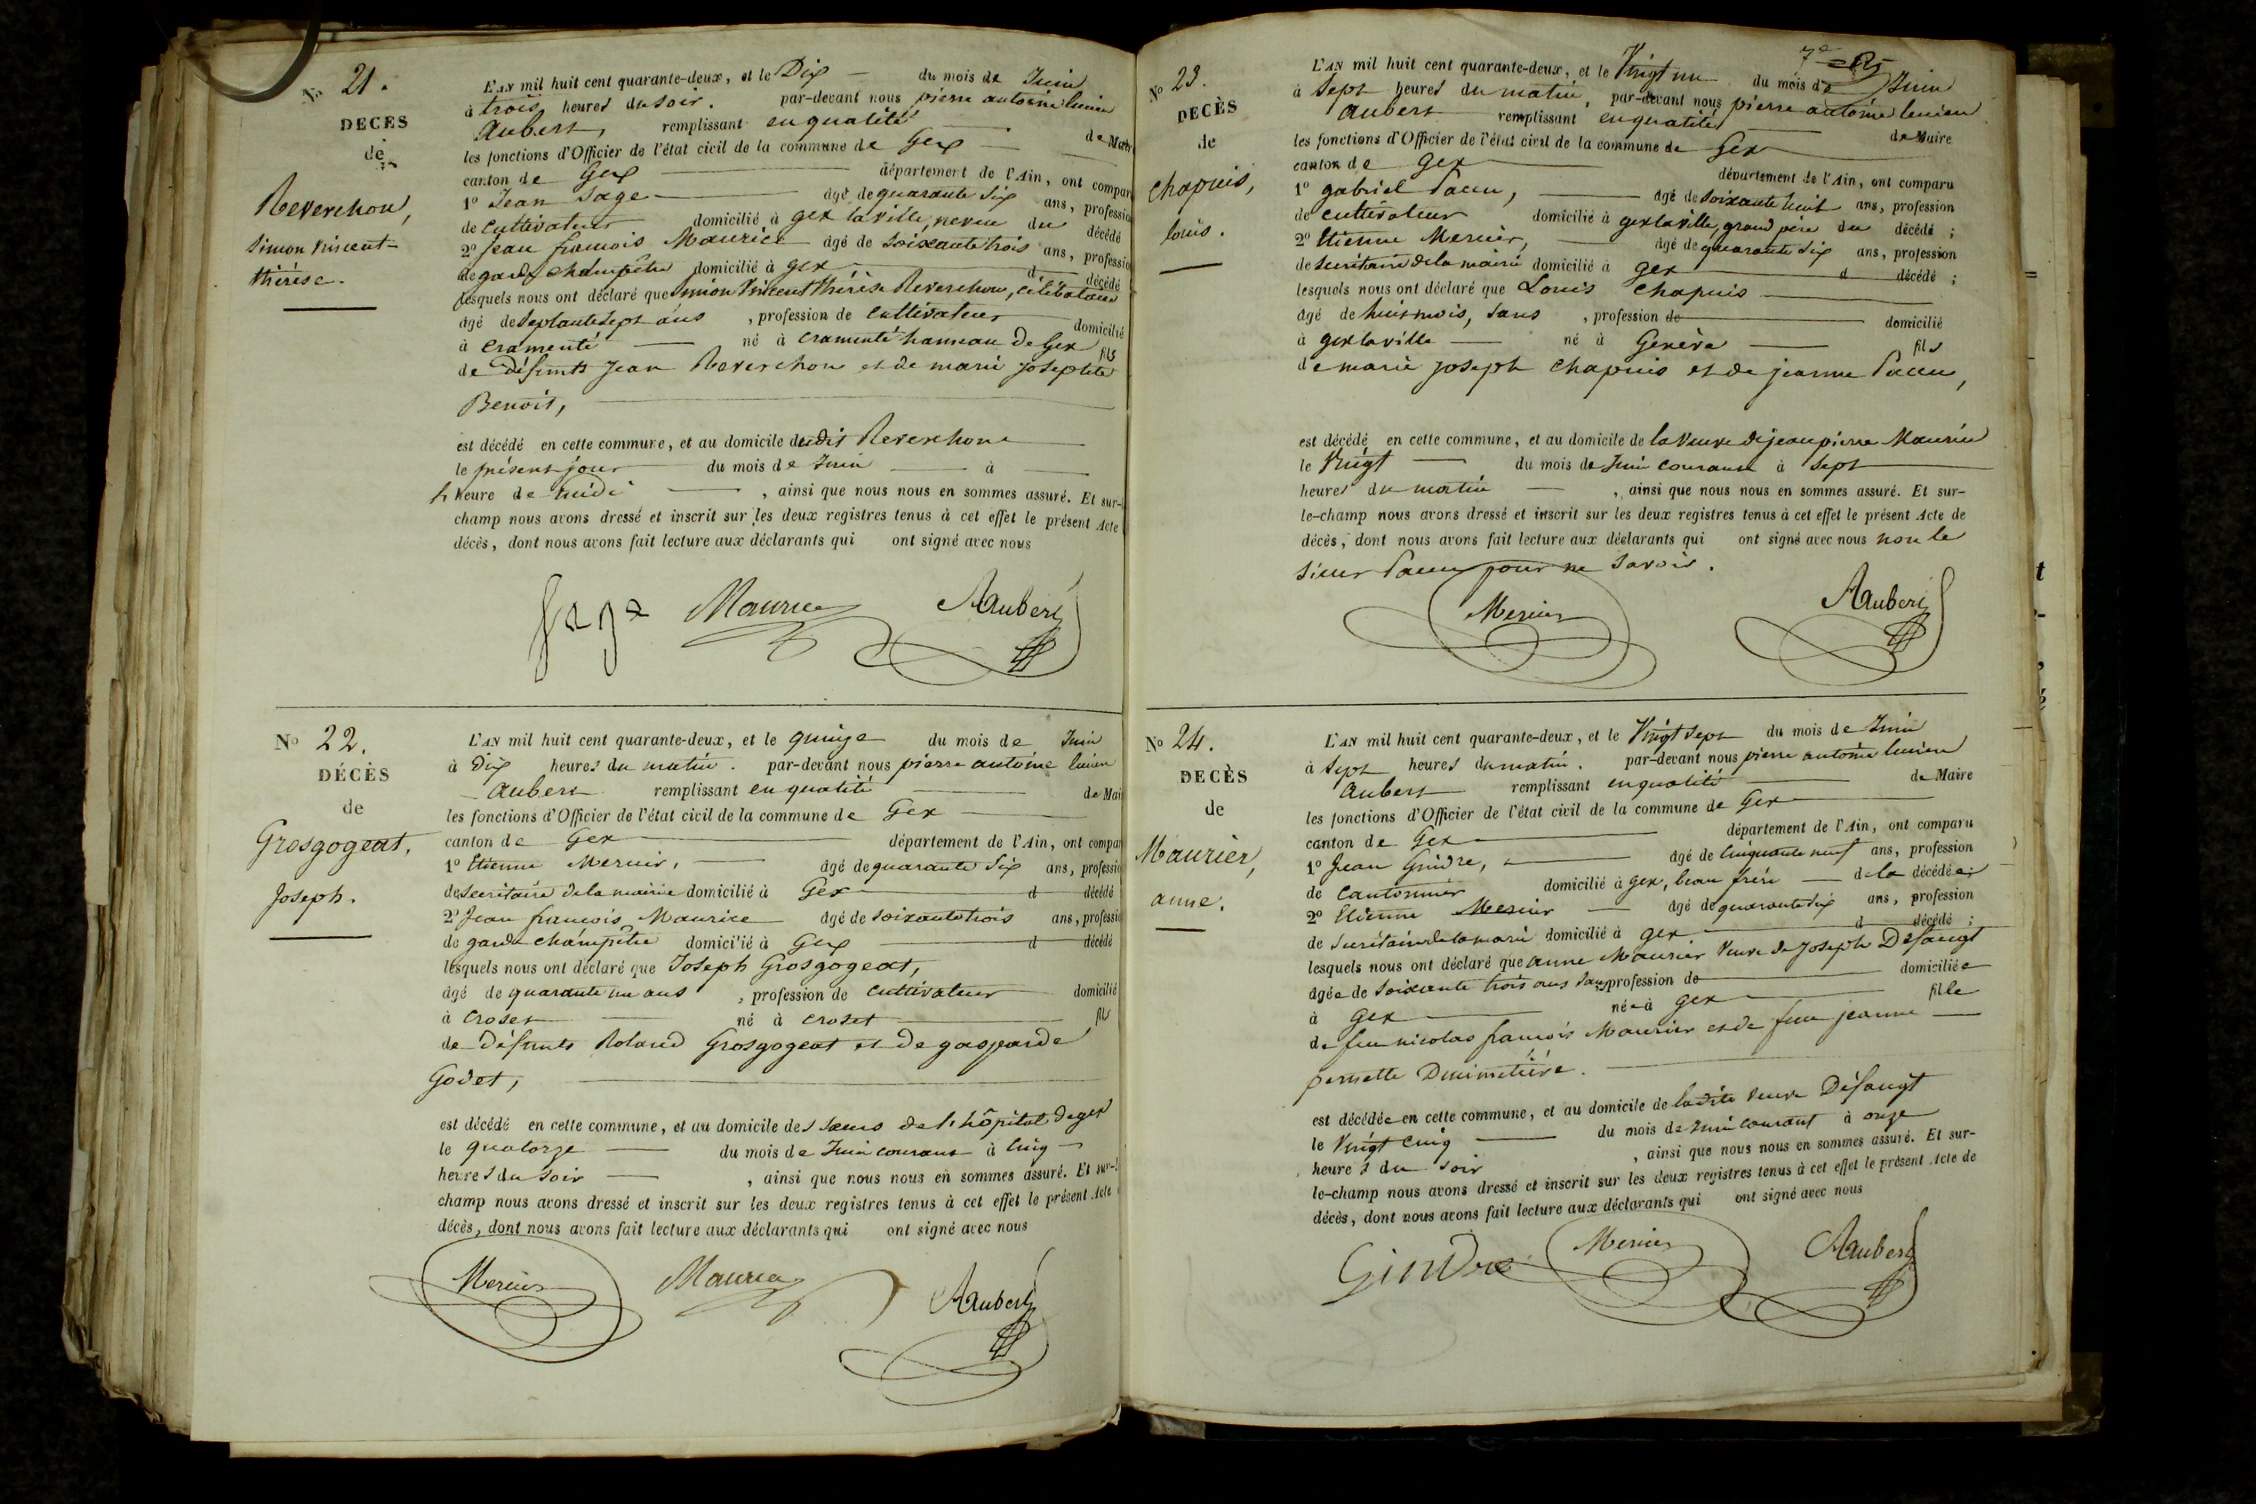 No 21.
DECES
de
Reverchon,
Simon Vincent-
thérèse.
L'AN mil huit cent quarante-deux, et le Dix du mois de Juin
à trois heures du soir. par-devant nous pierre antoine lucien
Aubert, remplissant en qualité de Maire
les fonctions d'Officier de l'état civil de la commune de Gex
canton de Gex département de l'Ain, ont compar
1º Jean Sage âgé de quarante Six ans, profession
de Cultivateur domicilié à gex la ville, neveu du décédé
2º Jean françois Maurice âgé de Soixante trois ans, professio
de garde champêtre domicilié à gex d décédé
lesquels nous ont déclaré que Simon Vincent thérèse Reverchon, célibataire
âgé de Septante Sept ans , profession de Cultivateur domicilié
à Cramenté né à Cramenté hameau de Gex fils
de Défunts Jean Reverchon et de marie Josephte
Benoit,
est décédé en cette commune, et au domicile dudit Reverchon
le présent jour du mois de Juin à
heure de midi , ainsi que nous nous en sommes assuré. Et sur-
champ nous avons dressé et inscrit sur les deux registres tenus à cet effet le présent Acte
décès, dont nous avons fait lecture aux déclarants qui ont signé avec nous
Sage Maurice AAubert
No 22.
DÉCÈS
de
Grosgogeat,
Joseph.
L'AN mil huit cent quarante-deux, et le quinze du mois de Juin
à Dix heures du matin. par-devant nous pierre antoine lucien
Aubert remplissant en qualité de Mai
les fonctions d'Officier de l'état civil de la commune de Gex
canton de Gex département de l'Ain, ont compar
1º Etienne Mercier, âgé de quarante Six ans, professio
de Secrétaire de la mairie domicilié à Gex d décédé
2º Jean françois Maurice âgé de Soixante trois ans, professio
de garde champêtre domicilié à Gex d décédé
lesquels nous ont déclaré que Joseph Grosgogeat,
âgé de quarante un ans , profession de Cultivateur domicilié
à Croset né à Croset fils
de Défunts Roland Grosgogeat et de gasparde
Godet,
est décédé en cette commune, et au domicile des Sœurs de l'hôpital de gex
le quatorze du mois de Juin courant à Cinq
heures du Soir , ainsi que nous nous en sommes assuré. Et sur-
champ nous avons dressé et inscrit sur les deux registres tenus à cet effet le présent Acte
décès, dont nous avons fait lecture aux déclarants qui ont signé avec nous
Mercier Maurice AAubert
7e
No 23.
DECÈS
de
Chapuis,
louis.
L'AN mil huit cent quarante-deux, et le Vingt un du mois de Juin
à Sept heures du matin, par-devant nous pierre antoine lucien
Aubert remplissant en qualité de Maire
les fonctions d'Officier de l'état civil de la commune de Gex
canton de Gex département de l'Ain, ont comparu
1º gabriel âgé de Soixante huit ans, profession
de Cultivateur domicilié à gex la ville, grand père du décédé ;
2º Etienne Mercier, âgé de quarante Six ans, profession
de Secrétaire de la mairie domicilié à gex d décédé ;
lesquels nous ont déclaré que Louis Chapuis
âgé de huit mois, Sans , profession de domicilié
à gex la ville né à Genève fils
de marie joseph Chapuis et de jeanne
est décédé en cette commune, et au domicile de la Veuve de jean pierre Maurier
le Vingt du mois de Juin courant à Sept
heures du matin , ainsi que nous nous en sommes assuré. Et sur-
le-champ nous avons dressé et inscrit sur les deux registres tenus à cet effet le présent Acte de
décès, dont nous avons fait lecture aux déclarants qui ont signé avec nous non le
Sieur pour ne Savoir.
Mercier AAubert
No 24.
DECÈS
de
Maurier,
anne.
L'AN mil huit cent quarante-deux, et le Vingt Sept du mois de Juin
à Sept heures du matin. par-devant nous pierre antoine lucien
Aubert remplissant en qualité de Maire
les fonctions d'Officier de l'état civil de la commune de Gex
canton de Gex département de l'Ain, ont comparu
1º Jean Gindre, âgé de Cinquante neuf ans, profession
de Cantonnier domicilié à gex, beau frère de la décédée ;
2º Etienne Mercier âgé de quarante Six ans, profession
de Secrétaire de la mairie domicilié à gex d décédé ;
lesquels nous ont déclaré que anne Maurier Veuve de Joseph Désaugt
âgée de Soixante trois ans Sans profession de domiciliée
à Gex née à gex fille
de feu nicolas françois Maurier et de feue jeanne
pernette Dunimétière.
est décédée en cette commune, et au domicile de ladite Veuve Désaugt
le Vingt Cinq du mois de Juin courant à onze
heures du Soir , ainsi que nous nous en sommes assuré. Et sur-
le-champ nous avons dressé et inscrit sur les deux registres tenus à cet effet le présent Acte de
décès, dont nous avons fait lecture aux déclarants qui ont signé avec nous
Gindre Mercier AAubert